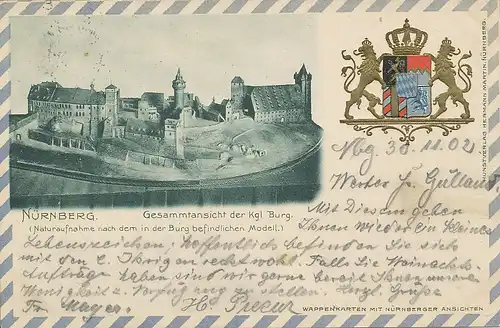 NÜRNBERG.
Gesammtansicht der Kgl Burg.
(Naturaufnahme nach dem in der Burg befindlichen Modell.)
KUNSTVERLAG HERMANN MARTIN, NÜRNBERG.
Nbg 30.11.02
Werter Gulland
Mit Diesem geben
Ihnen wieder ein kleines
Lebenszeichen; Hoffentlich befinden Sie sich
mit den l. Ihrigen recht wohl. Falls Sie Weinachts-
Aufträge haben sind wir gerne bereit Ihnen unsere
Wenigkeit z. Verfügung zu stellen. Herzl. Grüße
Fr. Mayer. H.
WAPPENKARTEN MIT NÜRNBERGER ANSICHTEN